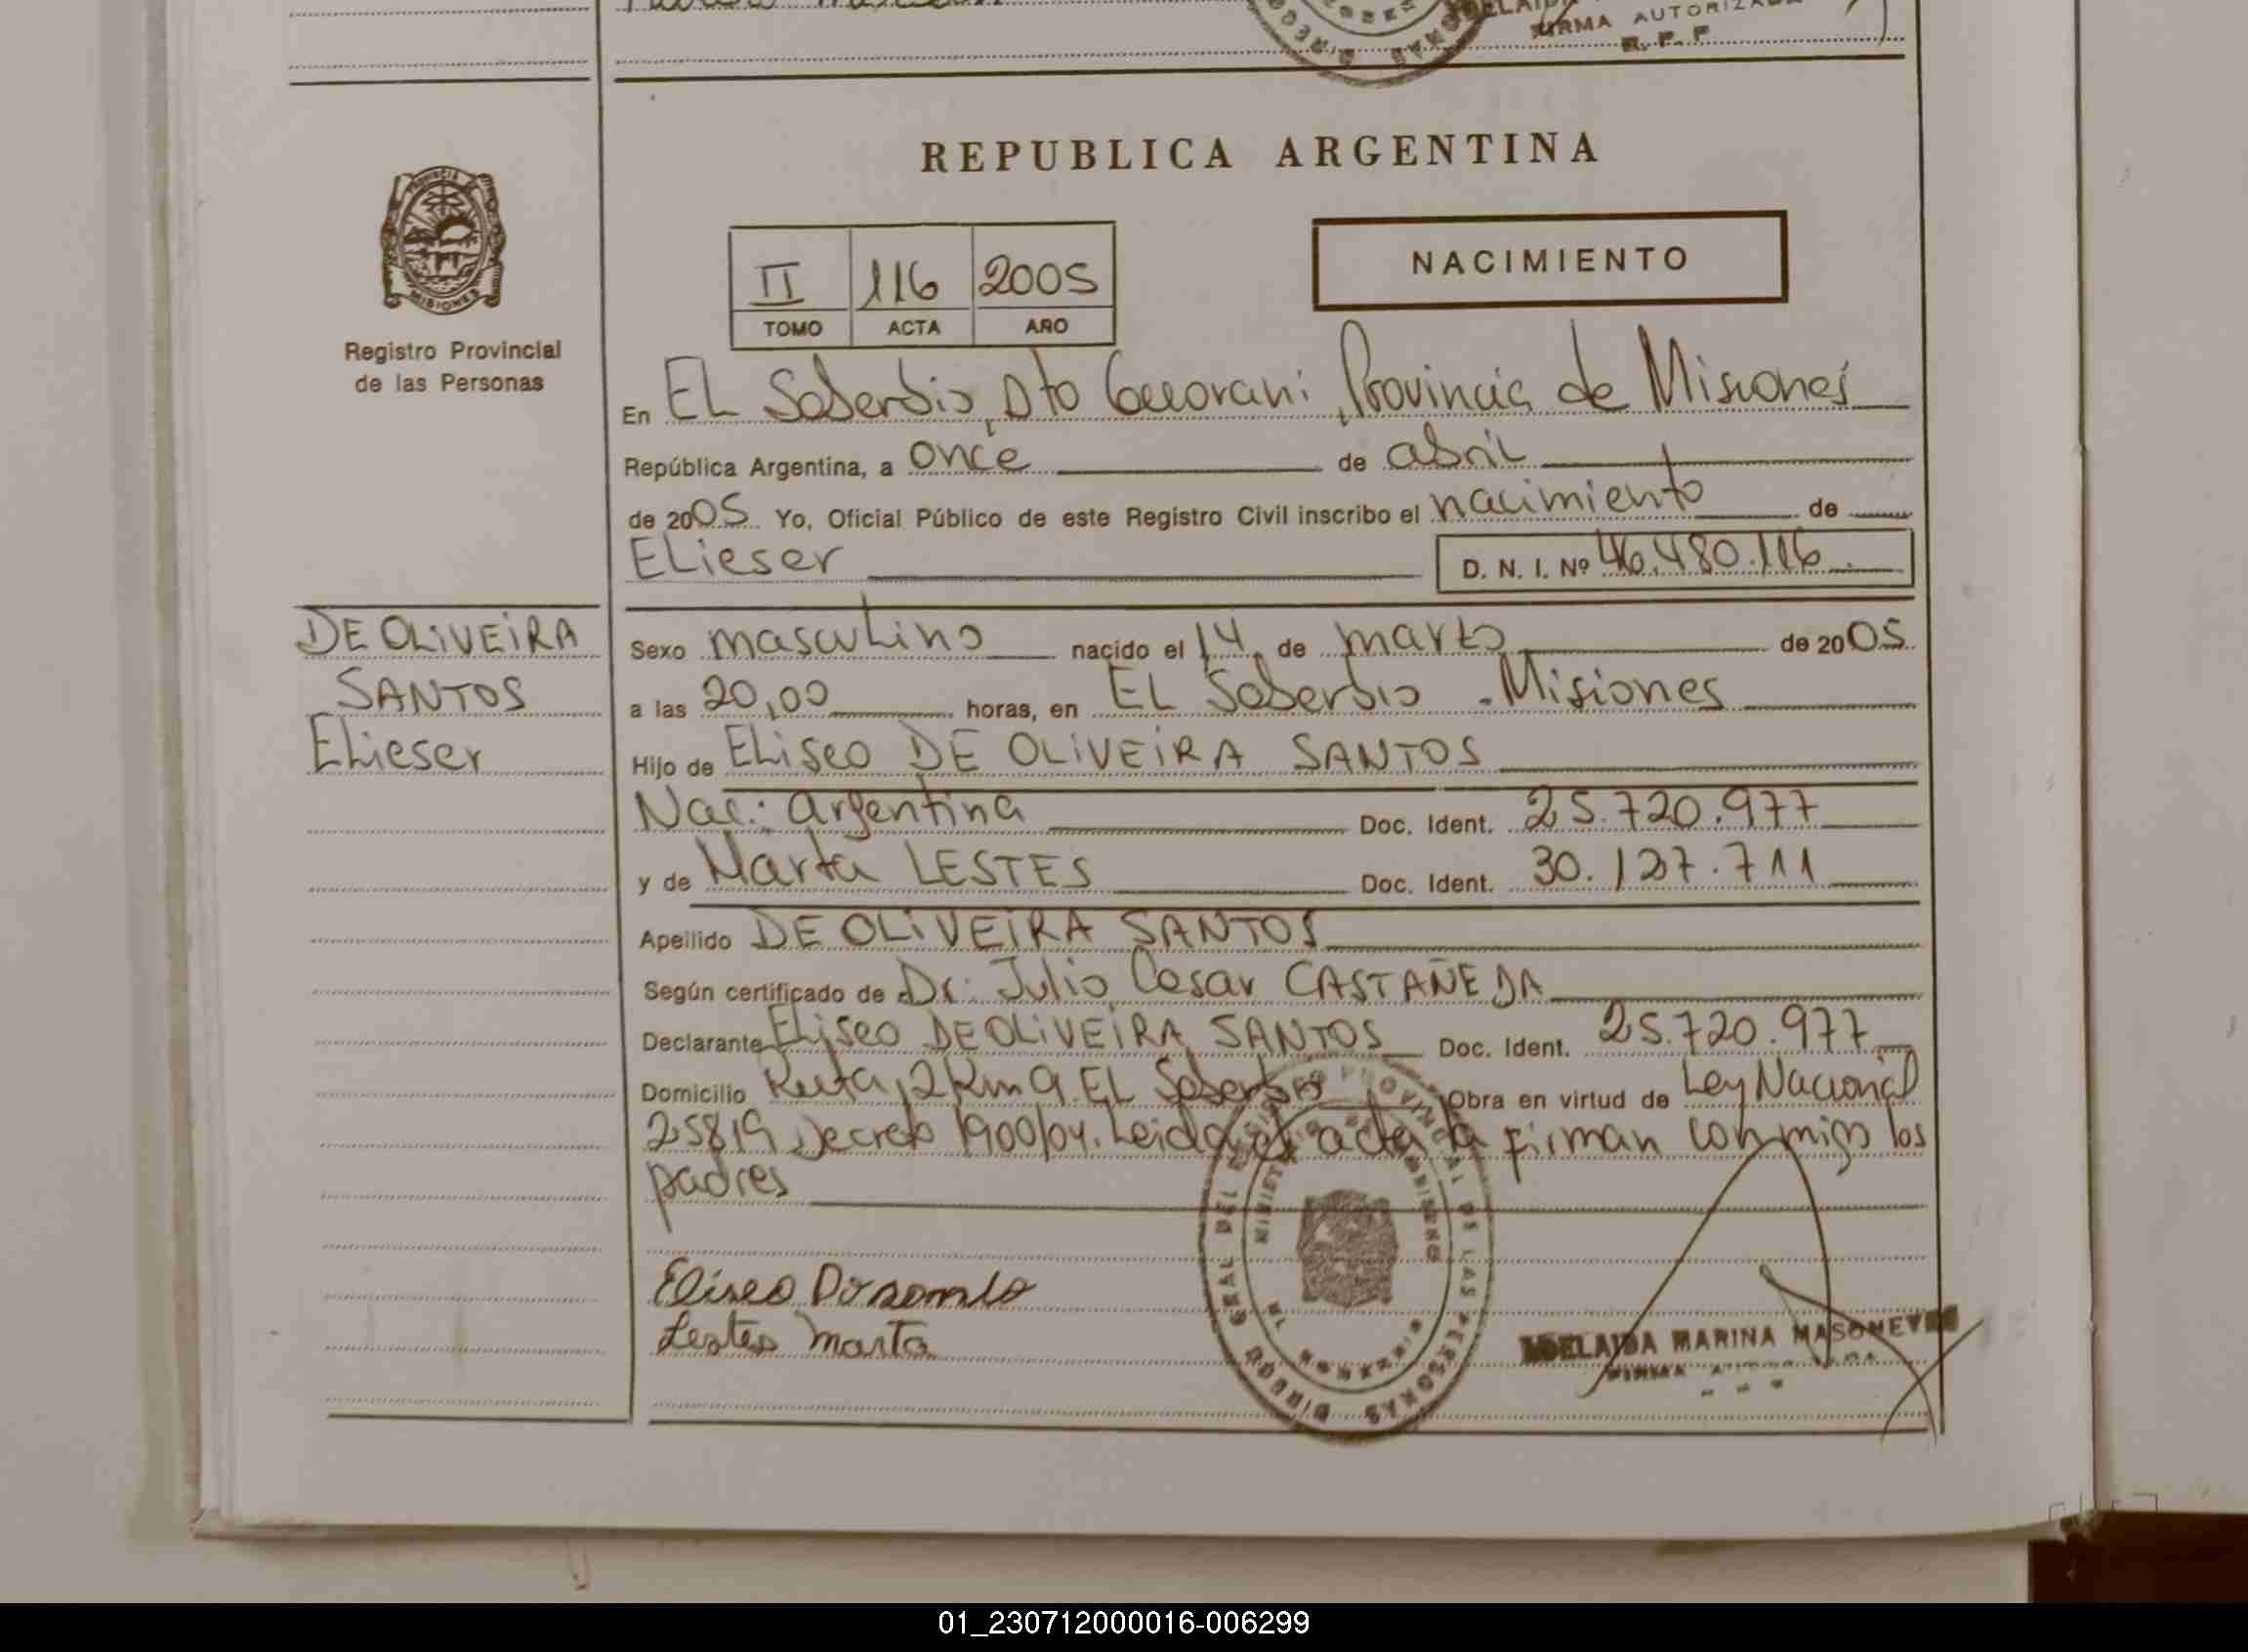 FIRMA AUTORIZADA
R. P. P
REPUBLICA ARGENTINA
PROVINCIA
MISIONES
Registro Provincial
de las Personas
II 116 2005
TOMO ACTA AÑO
NACIMIENTO
En EL Soberbio, Dto Guarani, Provincia de Misiones
República Argentina, a once de abril
de 2005 Yo, Oficial Público de este Registro Civil inscribo el nacimiento de
ELieser D. N. I. Nº 46.480.116
DE OLiVEiRA
SANTOS
ELieser
Sexo mascuLino nacido el 14 de marzo de 2005
a las 20,00 horas, en EL Soberbio - Misiones
Hijo de ELiseo DE OLiVEiRA SANTOS
Nac.: argentina Doc. Ident. 25.720.977
y de Marta LESTES Doc. Ident. 30.127.711
Apellido DE OLiVEiRA SANTOS
Según certificado de Dr. Julio Cesar CASTAÑEDA
Declarante ELiseo DE OLiVEiRA SANTOS Doc. Ident. 25.720.977
Domicilio Ruta 12 Km 9. EL Soberbio Obra en virtud de Ley Nacional
25819 Decreto 1900/04. Leida el acta la firman conmigo los
padres
Eliseo
Lestes Marta
ADELAIDA MARINA
FIRMA
01_230712000016-006299